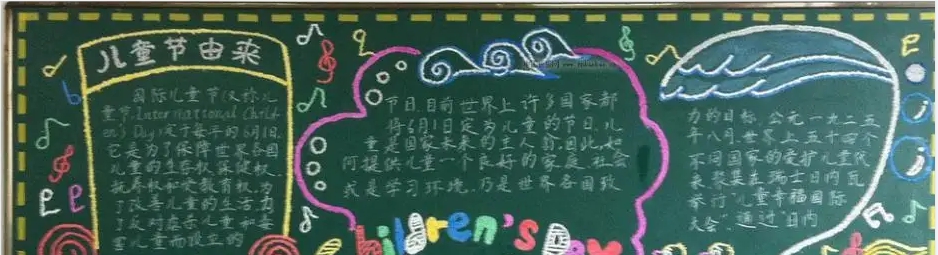 儿童节由来
国际儿童节(又称儿
童节,International Child
en's Day)定于每年的6月1日。
它是为了保障世界各国
儿童的生存权、保健权、
抚养权和受教育权,为
了改善儿童的生活,为
了反对虐杀儿童和毒
害儿童而设立的
节日目前世界上许多国家都
将6月1日定为儿童的节日。儿
童是国家未来的主人翁,因此,如
何提供儿童一个良好的家庭、社会
或是学习环境,乃是世界各国致
力的目标。公元一九二五
年八月世界上五十四个
不同国家的爱护儿童代
表,聚集在瑞士日内瓦
举行"儿童幸福国际
大会",通过"日内
children's Day